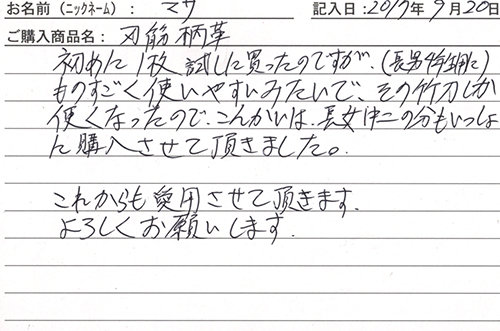 お名前(ニックネーム): マサ 記入日:2017年9月20日
ご購入商品名: 刃筋柄革
初めに1枚試しに買ったのですが、(長男4年生用に)
ものすごく使いやすいみたいで、その竹刀しか
使くなったので、こんかいは、長女中二の分もいっしょ
に購入させて頂きました。
これからも愛用させて頂きます。
よろしくお願いします。